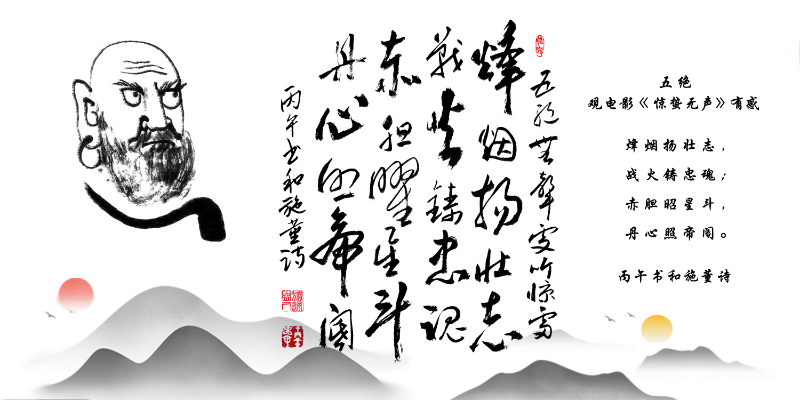 五绝 無聲處听惊雷
烽烟扬壮志
战火铸忠魂
赤胆曜星斗
丹心照帝阍
丙午书和施董诗
五绝
观电影《惊蛰无声》有感
烽烟扬壮志，
战火铸忠魂；
赤胆昭星斗，
丹心照帝阍。
丙午书和施董诗